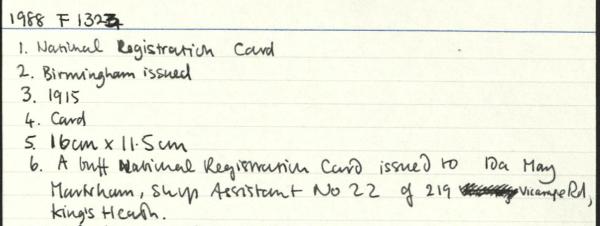 1988 F 1323
1. National Registration Card
2. Birmingham issued
3. 1915
4. Card
5. 16cm x 11.5cm
6. A buff National Registration Card issued to Ida May
Markham, Shop Assistant No 22 of 219 Vicarage Rd,
King's Heath.